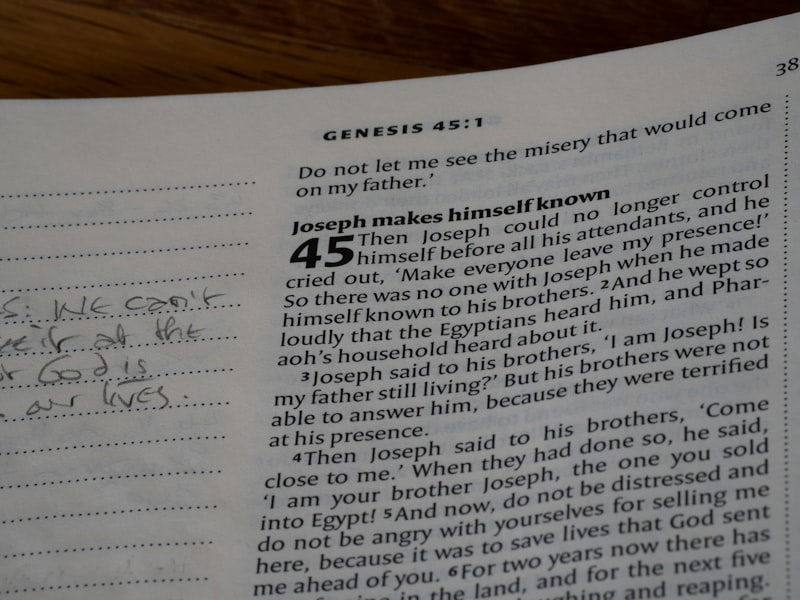 38
GENESIS 45:1
Do not let me see the misery that would come
on my father.’
Joseph makes himself known
45 Then Joseph could no longer control
himself before all his attendants, and he
cried out, ‘Make everyone leave my presence!’
So there was no one with Joseph when he made
himself known to his brothers. 2And he wept so
loudly that the Egyptians heard him, and Phar-
aoh’s household heard about it.
3Joseph said to his brothers, ‘I am Joseph! Is
my father still living?’ But his brothers were not
able to answer him, because they were terrified
at his presence.
4Then Joseph said to his brothers, ‘Come
close to me.’ When they had done so, he said,
‘I am your brother Joseph, the one you sold
into Egypt! 5And now, do not be distressed and
do not be angry with yourselves for selling me
here, because it was to save lives that God sent
me ahead of you. 6For two years now there has
in the land, and for the next five
and reaping.
We can't
at the
God is
our lives.